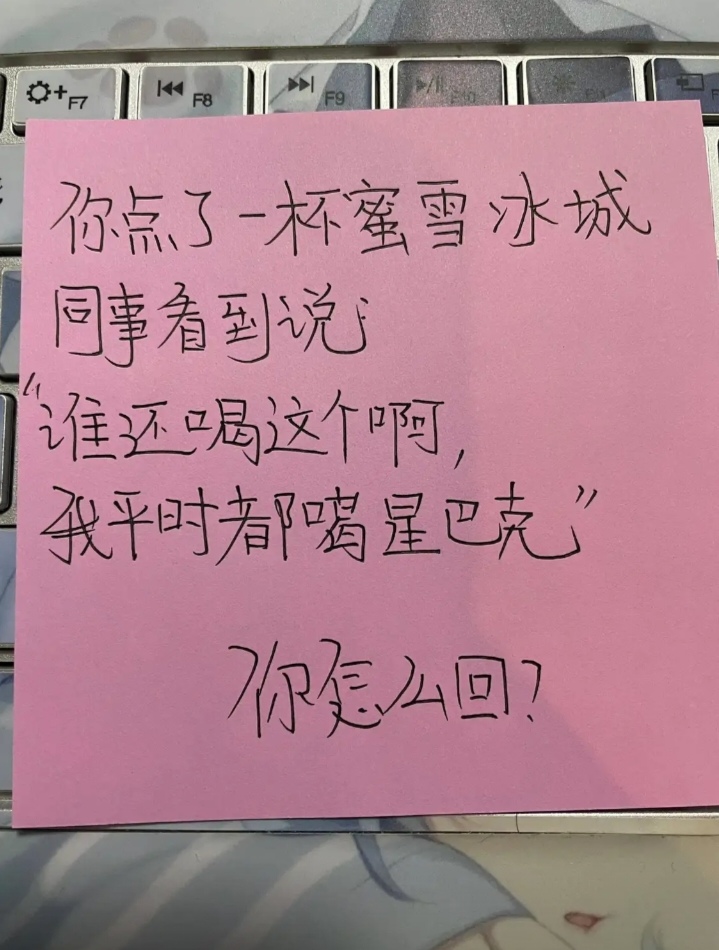 F7 F8 F9 F10
你点了一杯蜜雪冰城
同事看到说
“谁还喝这个啊,
我平时都喝星巴克”
你怎么回?